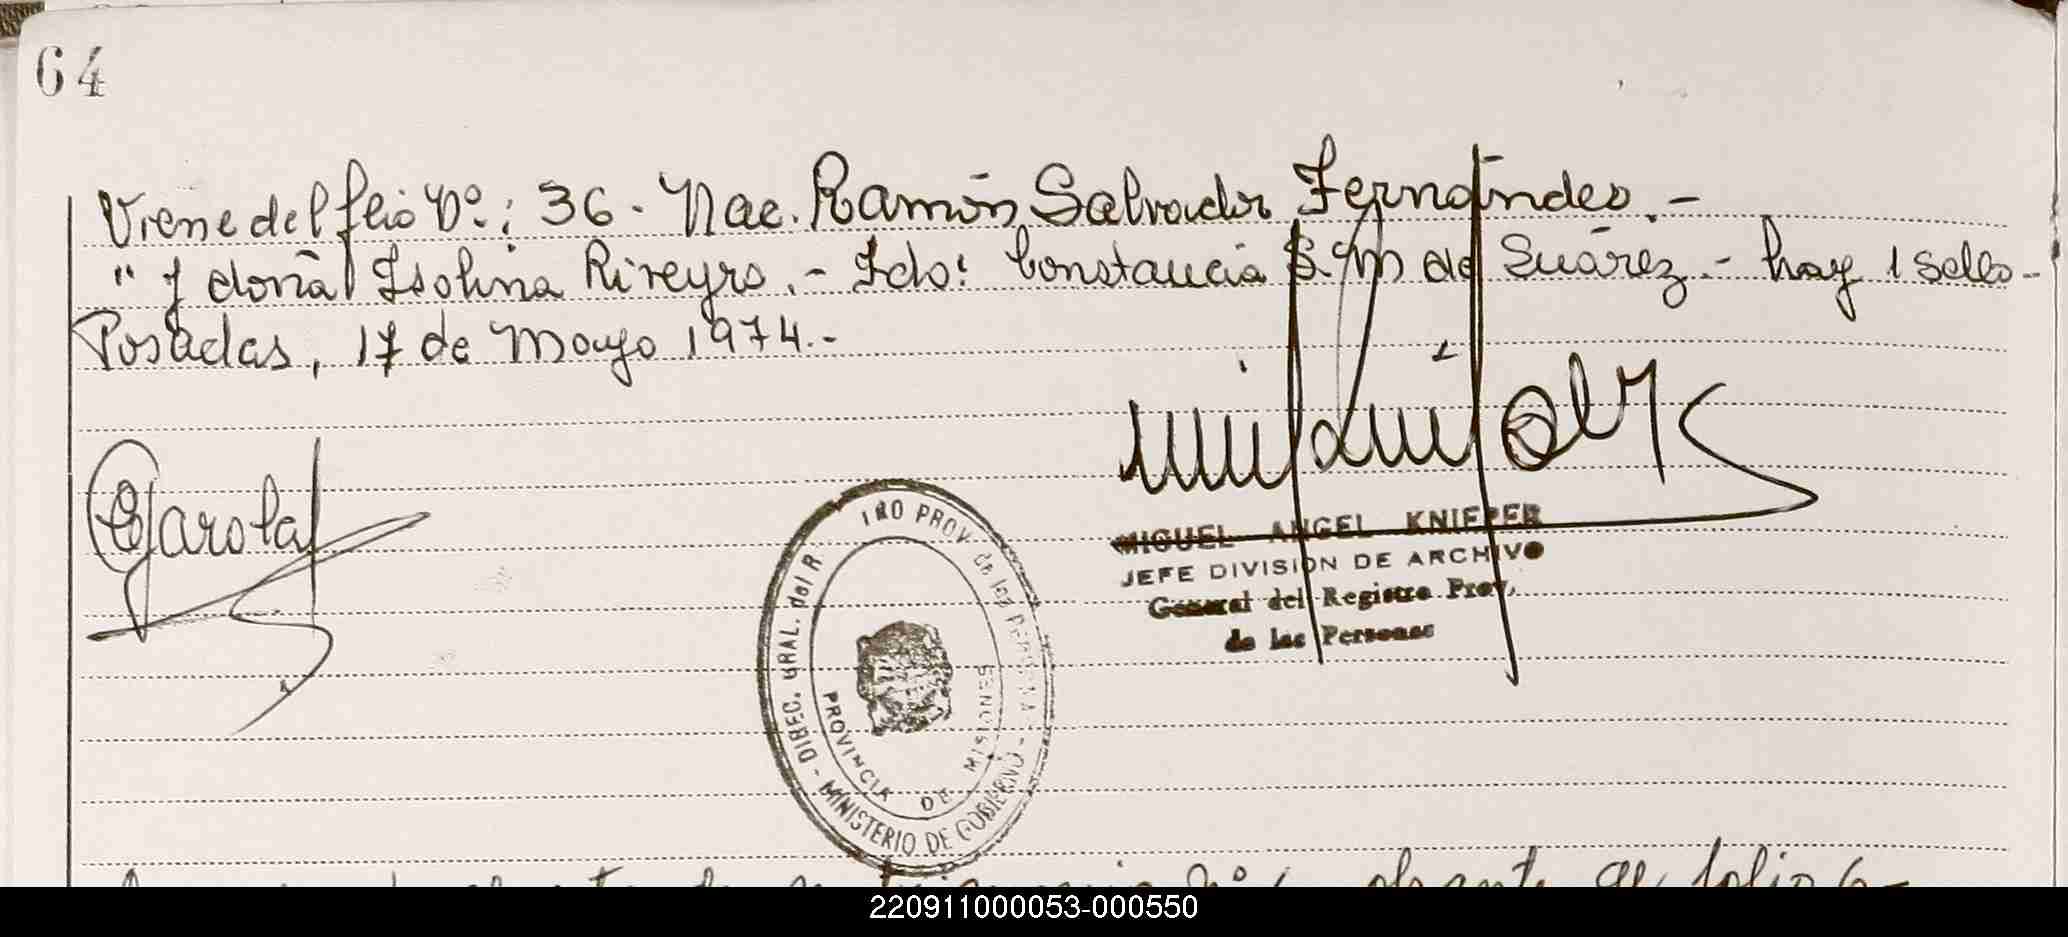 64
Viene del flio Nº: 36 - Nac. Ramón Salvador Fernández. -
" y doña Isolina Rireyro. - Fdo: Constancia S. de Suárez. - hay 1 sello -
Posadas, 17 de Mayo 1974. -
MIGUEL ANGEL KNIEPER
JEFE DIVISION DE ARCHIVO
General del Registro Prov.
de las Personas
DIREC. GRAL. del R. PROV. de las PERSONAS - MINISTERIO DE GOBIERNO -
PROVINCIA DE MISIONES
folio 6-
220911000053-000550